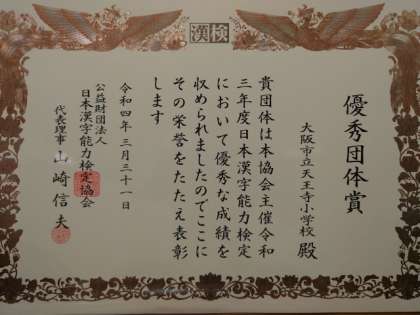 漢検
優秀団体賞
大阪市立天王寺小学校 殿
貴団体は本協会主催令和
三年度日本漢字能力検定
において優秀な成績を
収められましたのでここに
その栄誉をたたえ表彰
します
令和四年三月三十一日
公益財団法人
日本漢字能力検定協会
代表理事 山崎信夫